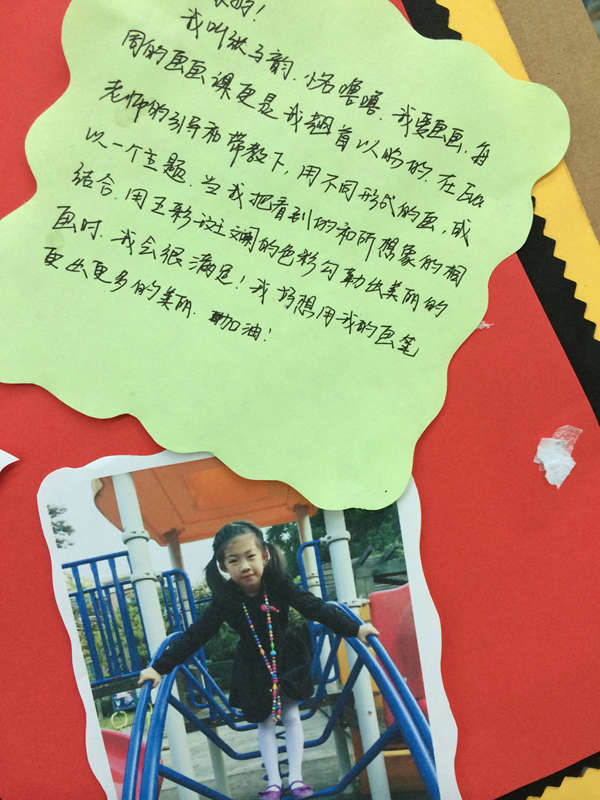 我叫张与韵.小名噜噜.我爱画画.每
周的画画课更是我翘首以盼的.在Eva
老师的引导和带教下,用不同形式的画,或
以一个主题.当我把看到的和所想象的相
结合.用五彩斑斓的色彩勾勒出美丽的
画时.我会很满足!我好想用我的画笔
画出更多的美丽.加油!